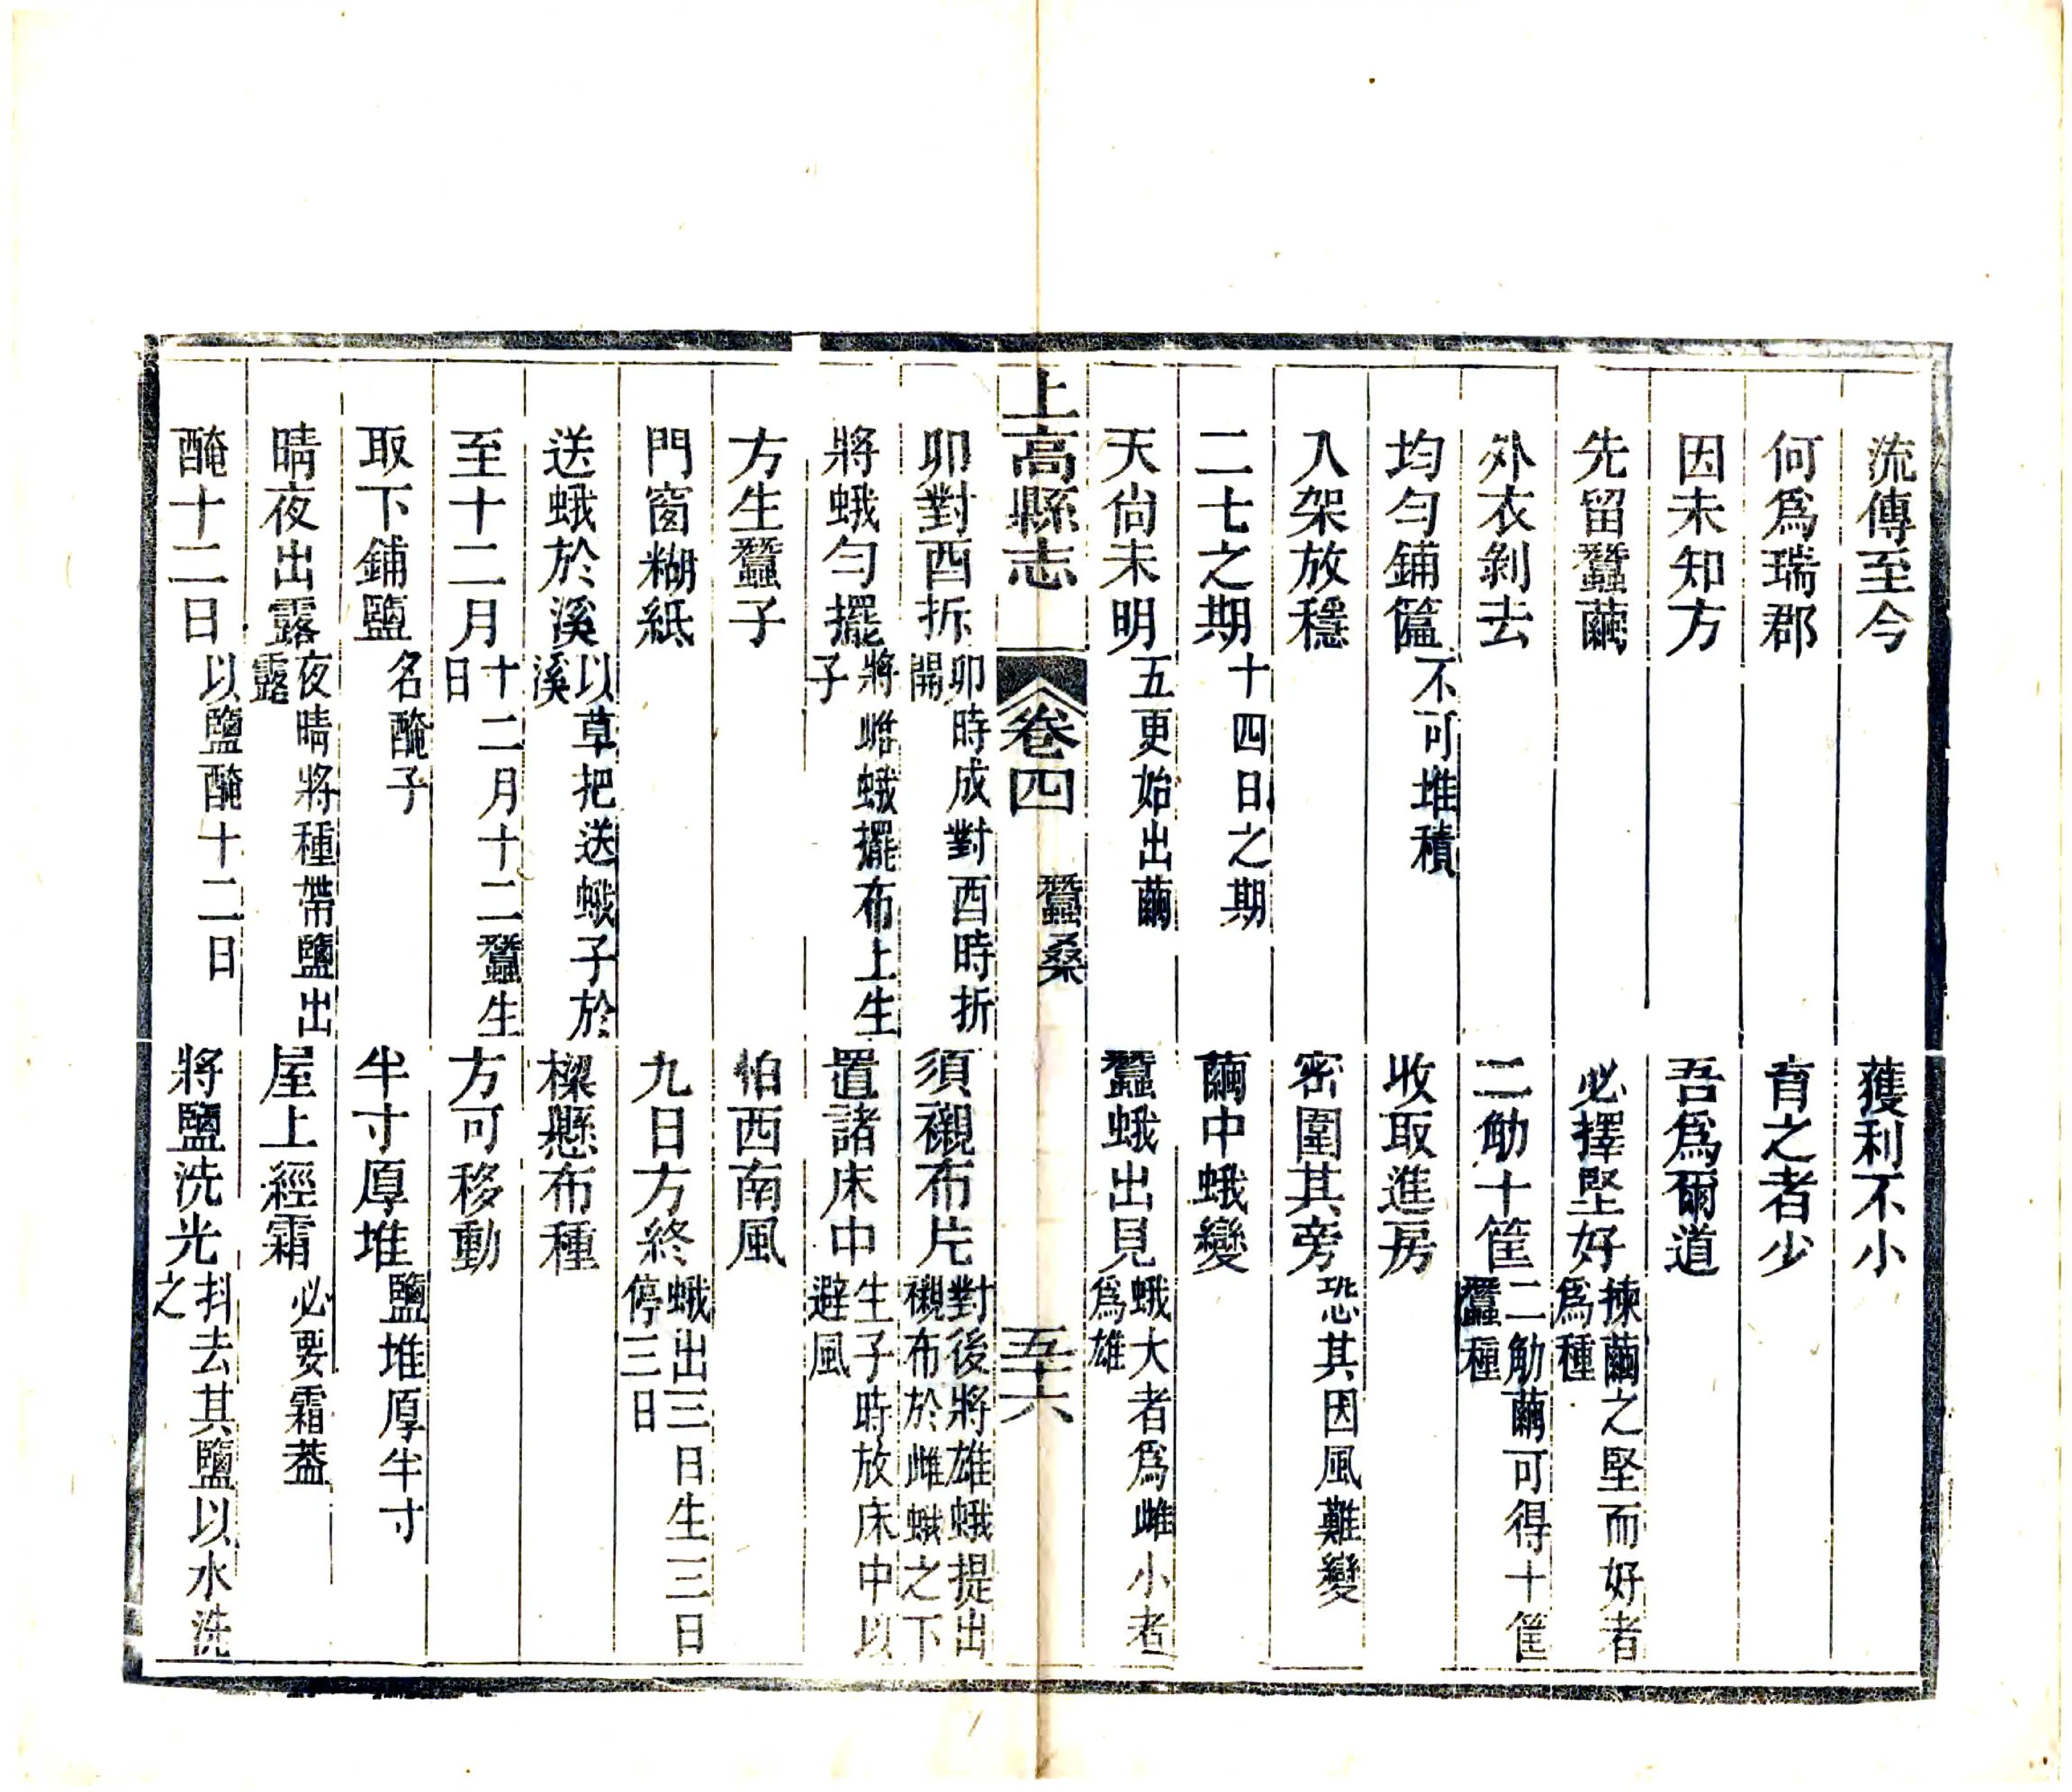 流傳至今　獲利不小
何爲瑞郡　育之者少
因未知方　吾爲爾道
先留蠶繭　必擇堅好揀繭之堅而好者爲種
外衣剝去　二觔十筐二觔繭可得十筐蠶種
均勻鋪籃不可堆積　收取進房
入架放穩　密圍其旁恐其因風難變
二七之期十四日之期　繭中蛾變
天尙未明五更始出繭　蠶蛾出見蛾大者爲雌小者爲雄
上高縣志　卷四　蠶桑　五十六
卯對酉拆卯時成對酉時折開　須襯布片對後將雄蛾提出襯布於雌蛾之下
將蛾勻擺將雌蛾擺布上生子　置諸床中生子時放床中以避風
方生蠶子　怕西南風
門窗糊紙　九日方終蛾出三日生三日停三日
送蛾於溪以草把送蛾子於溪　樑懸布種
至十二月十二月十二蠶生日　方可移動
取下鋪鹽名醃子　半寸厚堆鹽堆厚半寸
晴夜出露夜晴將種帶鹽出露　屋上經霜必要霜葢
醃十二日以鹽醃十二日　將鹽洗光抖去其鹽以水洗之